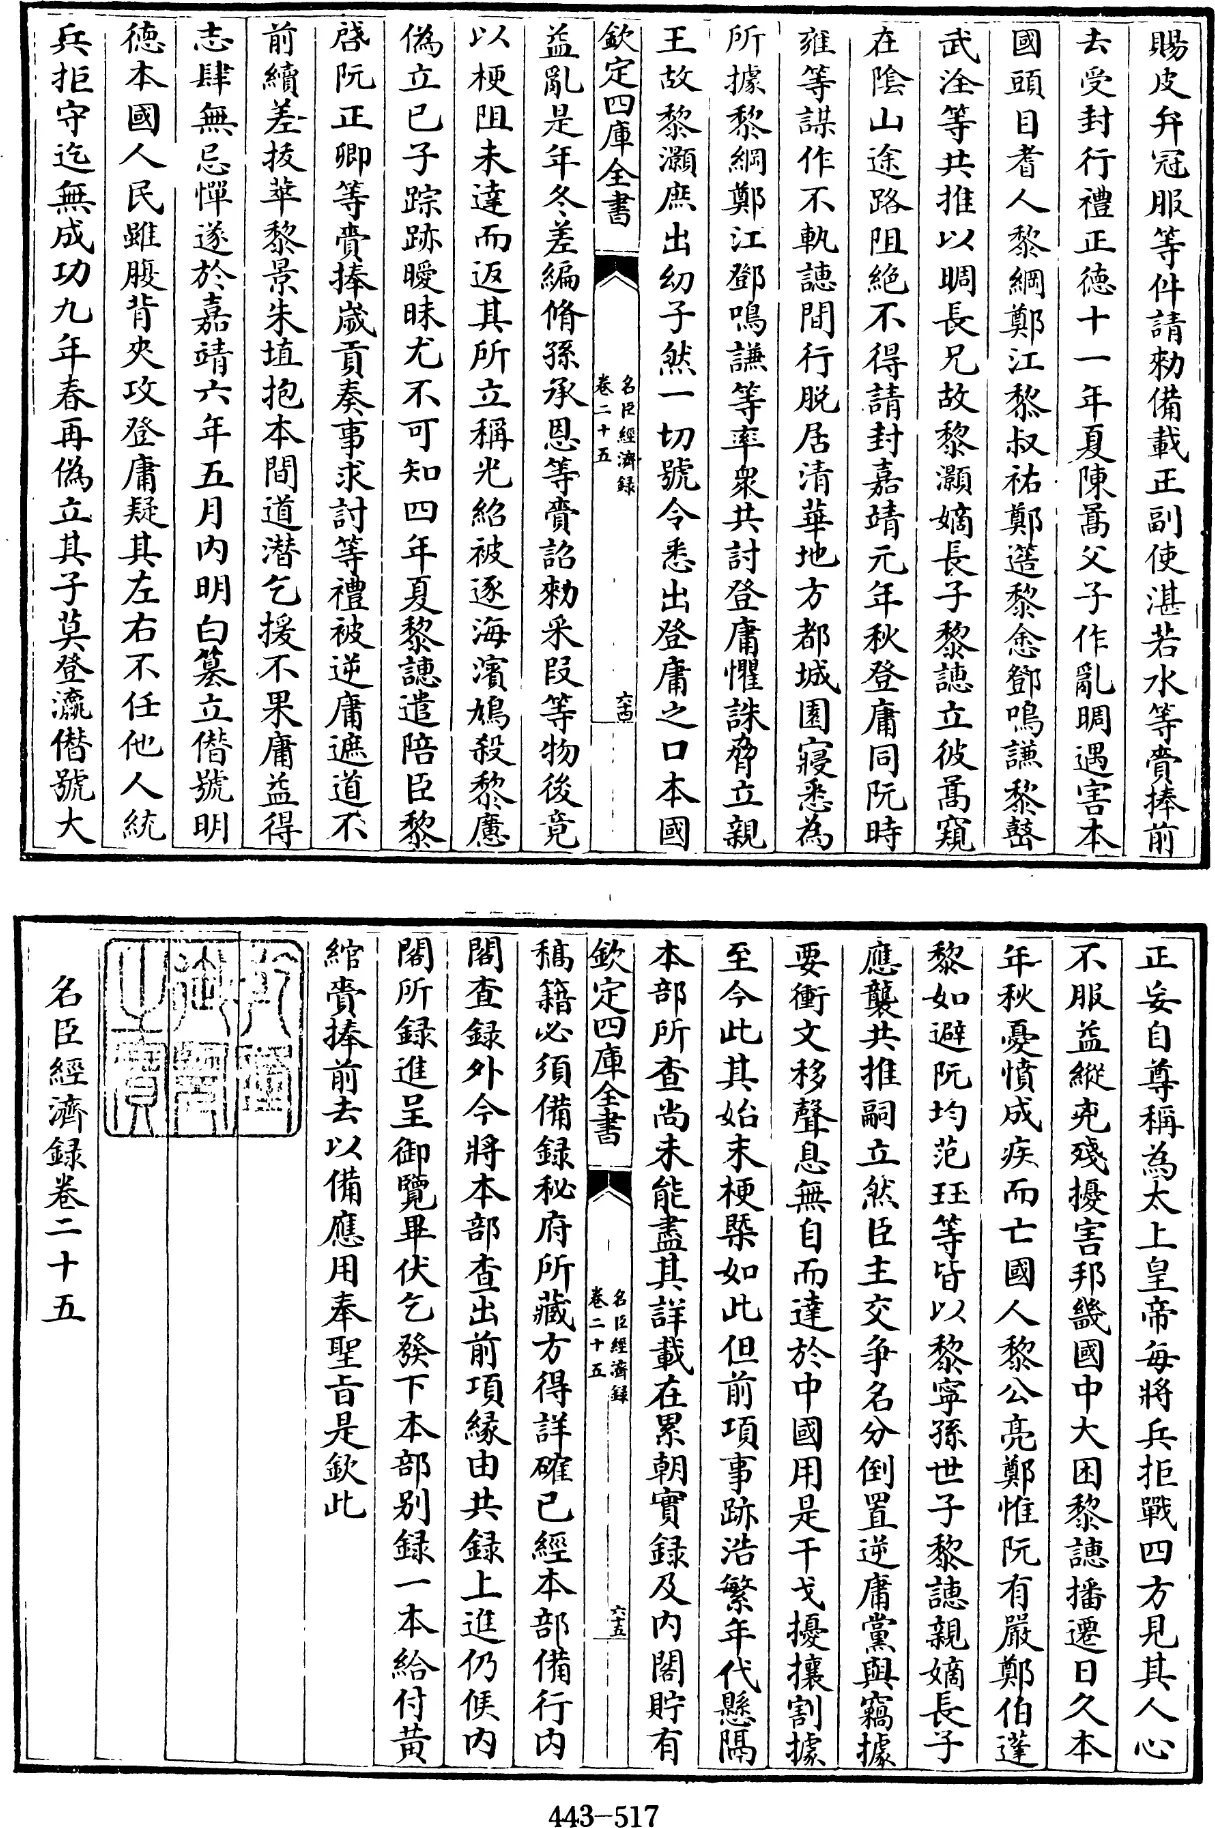 賜皮弁冠服等件請勑備載正副使湛若水等賫捧前
去受封行禮正德十一年夏陳暠父子作亂晭遇害本
國頭目耆人黎綱鄭江黎叔祐鄭𨗿黎悆鄧鳴謙黎㲄
武淦等共推以晭長兄故黎灝嫡長子黎譓立彼暠窺
在隂山途路阻絶不得請封嘉靖元年秋登庸同阮時
雍等謀作不軌譓間行脱居清華地方都城園寢悉為
所據黎綱鄭江鄧鳴謙等率衆共討登庸懼誅脅立親
王故黎灝庶出幼子然一切號令悉出登庸之口本國
欽定四庫全書
名臣經濟録
卷二十五
六十四
益亂是年冬差編脩孫承恩等賫詔勑采叚等物後竟
以梗阻未達而返其所立稱光紹被逐海濱鴆殺黎懬
偽立已子踪跡曖昧尤不可知四年夏黎譓遣陪臣黎
啓阮正卿等賫捧嵗貢奏事求討等禮被逆庸遮道不
前續差拔萃黎景朱埴抱本間道潜乞援不果庸益得
志肆無忌憚遂於嘉靖六年五月内明白簒立僣號明
徳本國人民雖腹背夾攻登庸疑其左右不任他人統
兵拒守迄無成功九年春再偽立其子莫登瀛僣號大
正妄自尊稱為太上皇帝每將兵拒戰四方見其人心
不服益縱兇殘擾害邦畿國中大困黎譓播遷日久本
年秋憂憤成疾而亡國人黎公亮鄭惟阮有嚴鄭伯蓬
黎如避阮均范珏等皆以黎寧孫世子黎譓親嫡長子
應襲共推嗣立然臣主交争名分倒置逆庸黨與竊據
要衝文移聲息無自而達於中國用是干戈擾攘割據
至今此其始末梗槩如此但前項事跡浩繁年代懸隔
本部所查尚未能盡其詳載在累朝實録及内閣貯有
欽定四庫全書
名臣經濟録
卷二十五
六十五
稿籍必須備録秘府所藏方得詳確已經本部備行内
閣查録外今將本部查出前項縁由共録上進仍候内
閣所録進呈御覽畢伏乞發下本部别録一本給付黄
綰賫捧前去以備應用奉聖㫖是欽此
名臣經濟録卷二十五
443-517